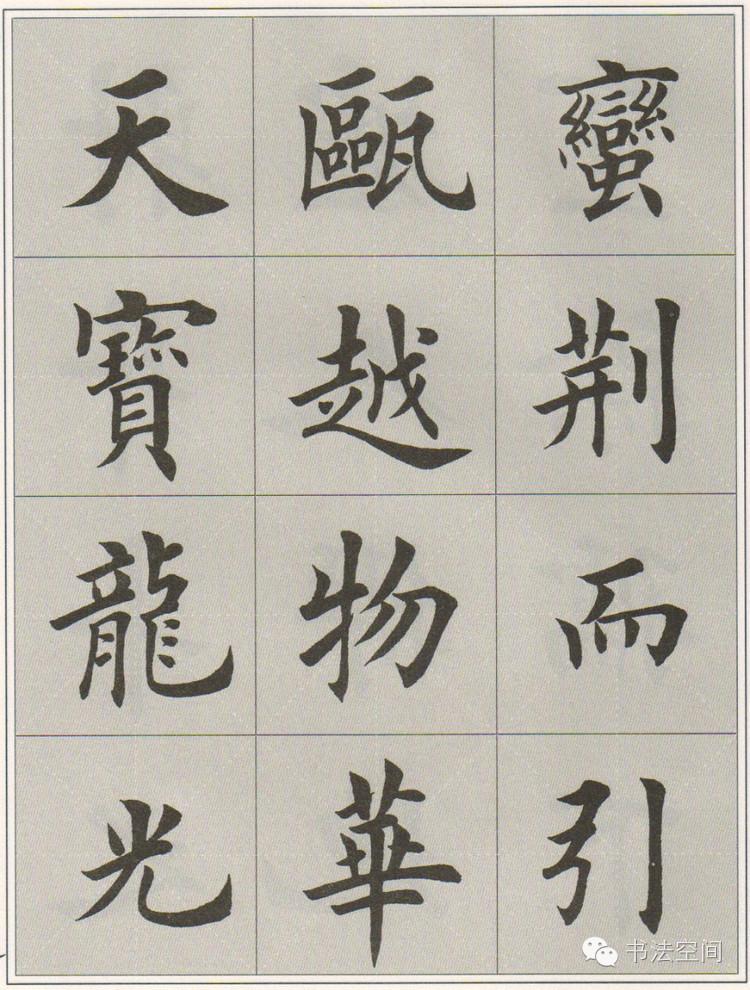 蠻荆而引
甌越物華
天寶龍光
书法空间